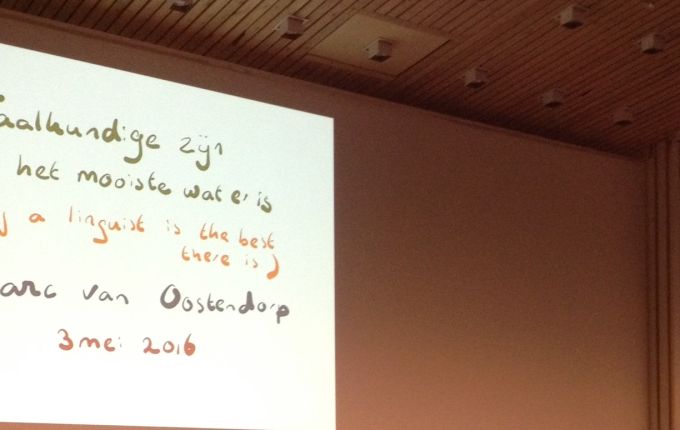 aalkundige zijn
het mooiste wat er is
a linguist is the best
there is)
arc van Oostendorp
3 mei 2016